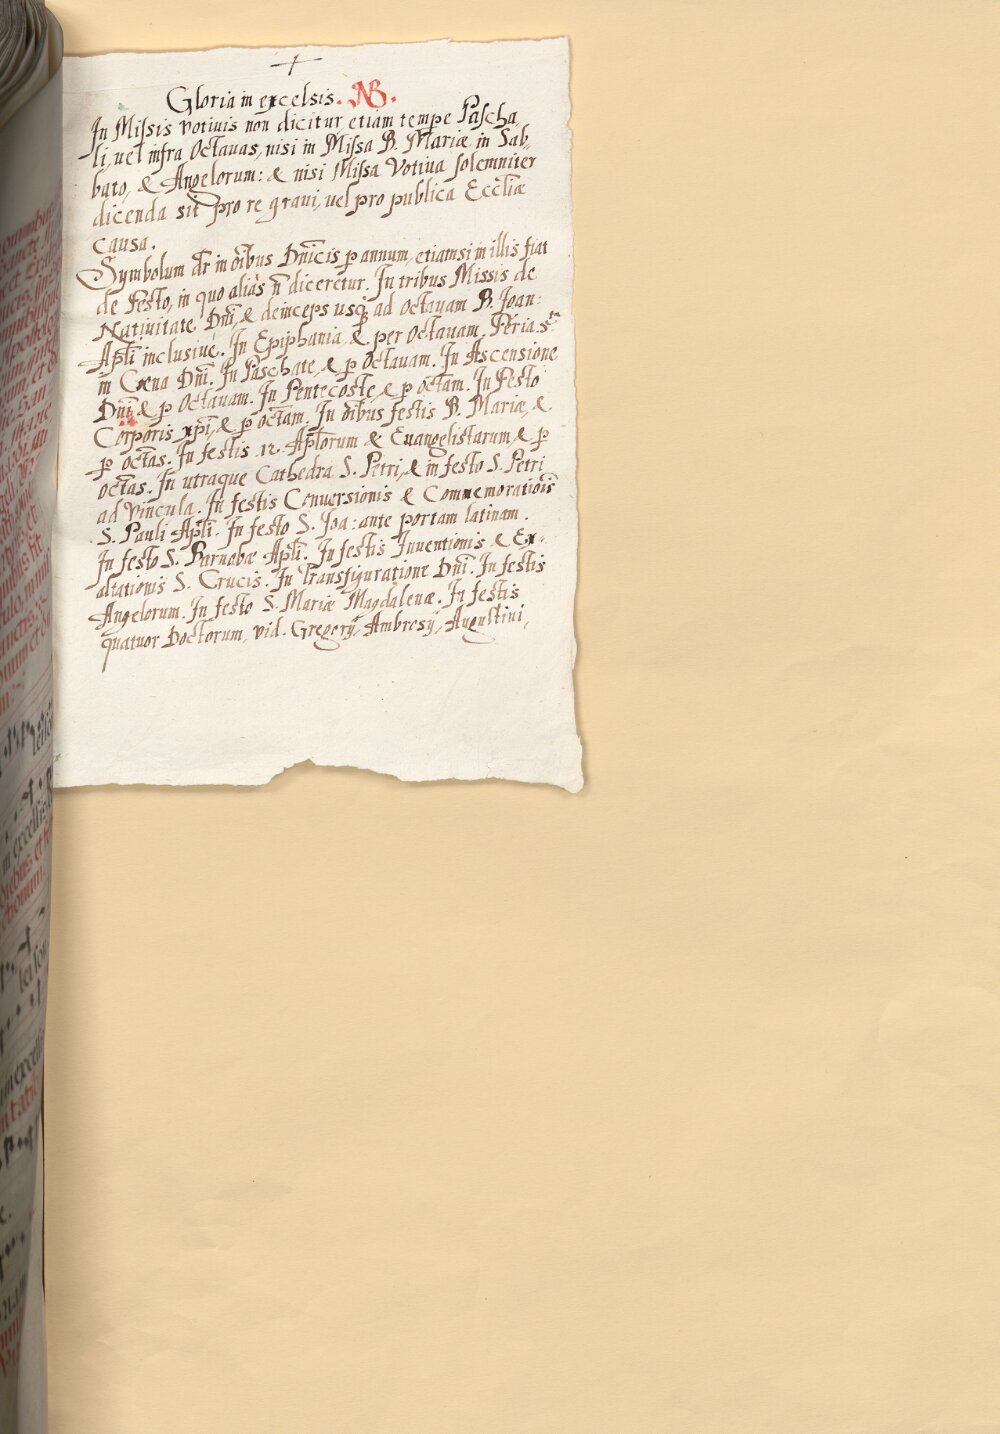 +
Gloria in excelsis. NB.
In Missis votiuis non dicitur, etiam tempe Pascha,
li, uel infra Octauas, nisi in Missa B. Mariæ in Sab,,
bato, & Angelorum: & nisi Missa Votiua solemniter
dicenda sit pro re graui, uel pro publica Eccliæ
causa.
Symbolum dr in oibus Dnicis p annum, etiamsi in illis fiat
de Festo, in quo aliàs n diceretur. In tribus Missis de
Natiuitate Dni, & deinceps usq; ad Octauam B. Joan:
Apli inclusiuè. In Epiphania & per Octauam. Feria 5ta
in Cœna Dni. In Paschate, & p Octauam. In Ascensione
Dni & p Octauam. In Pentecoste, & p octam. In Festo
Corporis xpi, & p octam. In oibus festis B. Mariæ, &
p octas. In festis 12. Aplorum & Euangelistarum, & p
octas. In utraque Cathedra S. Petri, & in festo S. Petri
ad Vincula. In festis Conuersionis & Commemorationis
S. Pauli Apli. In festo S. Joa: ante portam latinam.
In festo S. Barnabæ Apli. In festis Inuentionis & Ex,,
altationis S. Crucis. In Transfiguratione Dni. In festis
Angelorum. In festo S. Mariæ Magdalenæ. In festis
quatuor Doctorum, vid. Gregorij, Ambrosij, Augustini,